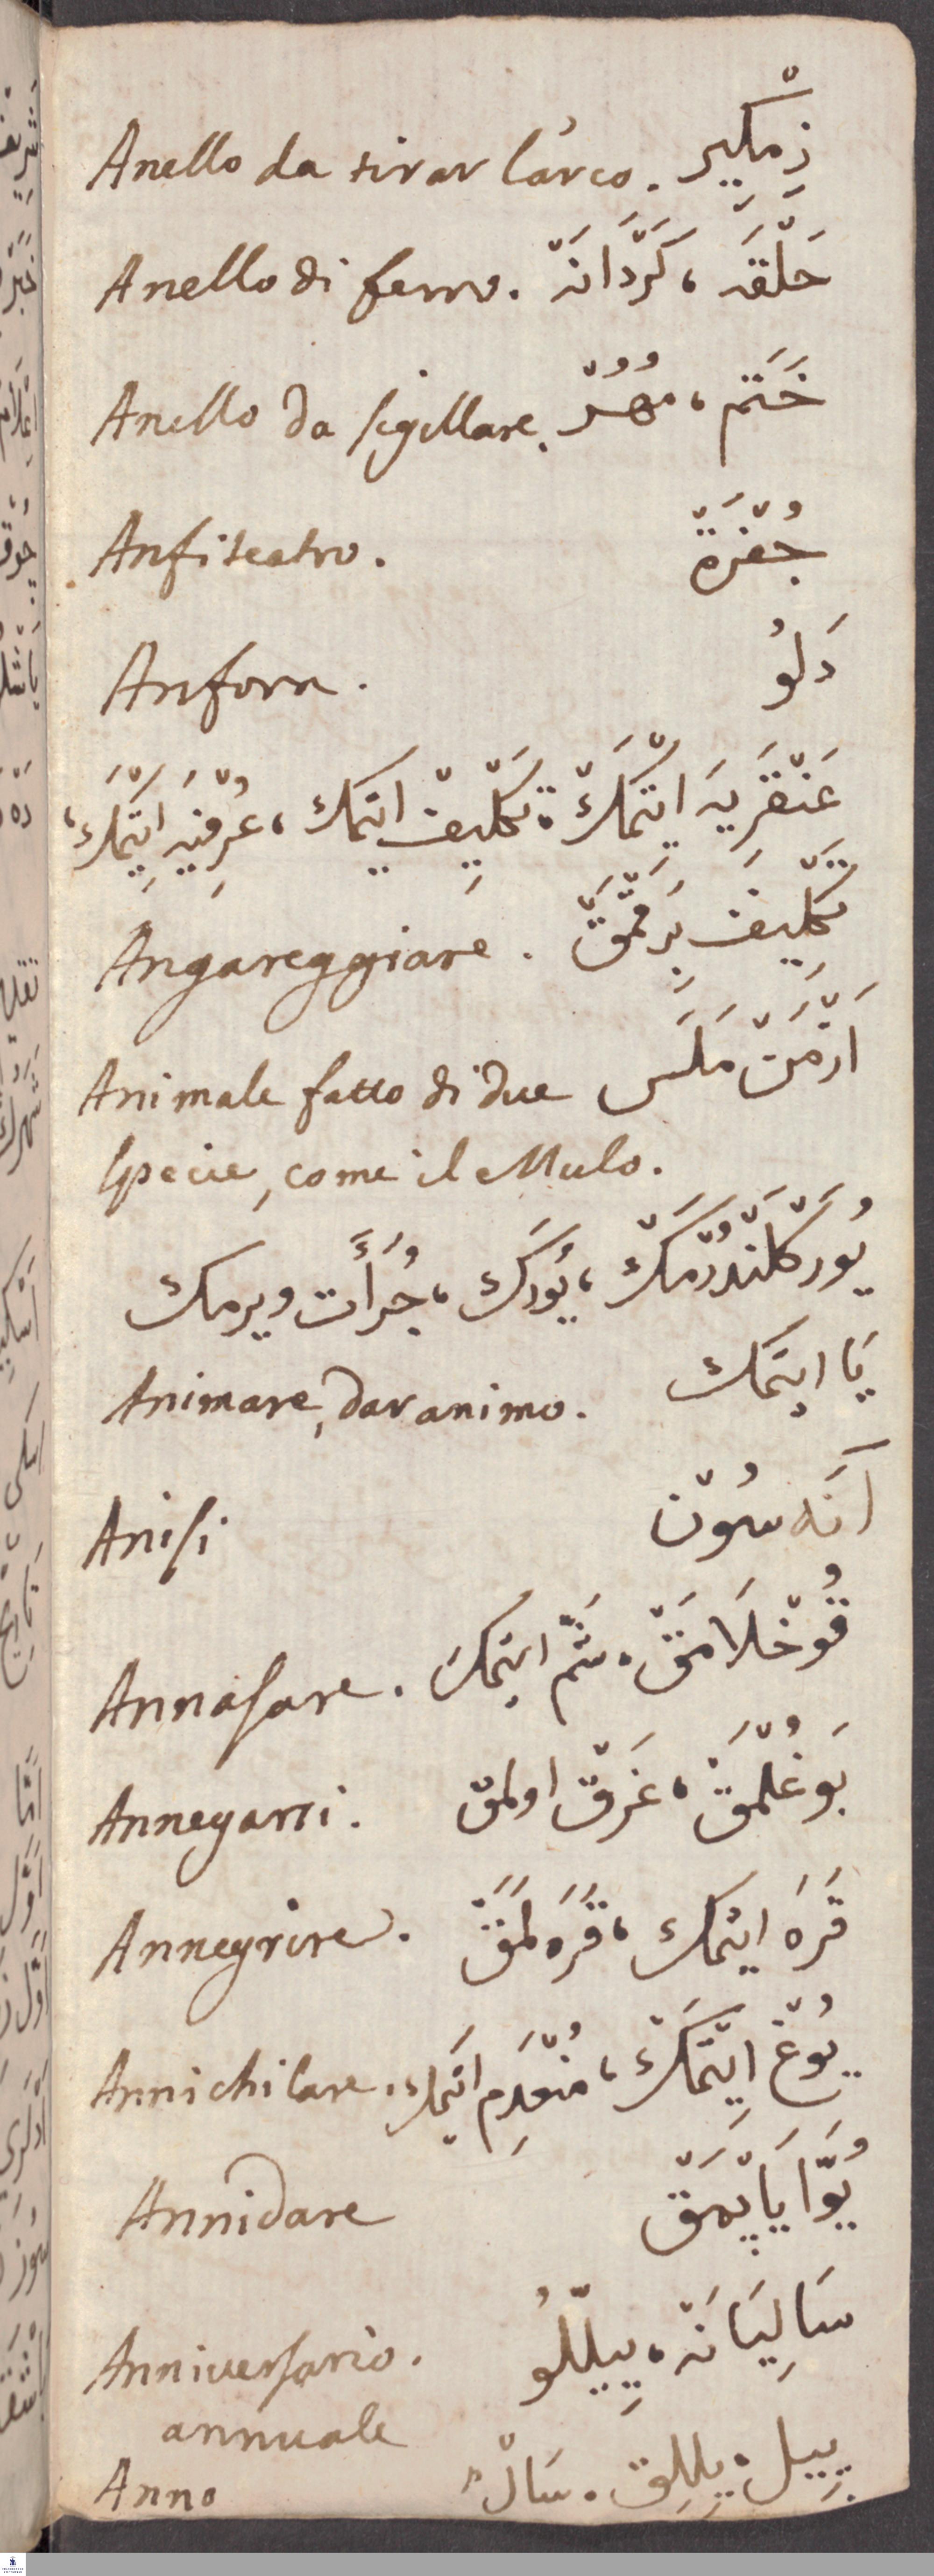 Anello da tirar l'arco. زِمكِير
Anello di ferro. حَلْقَه، كَرْدَانَه
Anello da sigillare. خَتَم، مُهُرْ
Anfiteatro. جُفْرَةْ
Anfora. دَلوُ
عَنْقَرِيَه اِيتْمَكْ، تَكْلِيفْ ايتمَك، عُرْفِيَه اِيتْمَكْ،
Angareggiare. تَكْلِيفْ بِرَقْمَقْ
Animale fatto di due اَزْمَنْ مَلَس
specie, come il Mulo.
يُورَكْلَنْدُرْمَكْ، يُورَك، جُرأَت ويرمك
Animare, dar animo. يَا ايتمَك
Anisi اَنَه سُونْ
Annasare. قُوخْلَامَقْ، شَمّ ايتمَك
Annegarsi. بَوغُلْمَقْ، غَرَقْ اولمق
Annegrire. قَرَه ايتمك، قَرَه لَمَقْ
Annichilare. يُوغْ اِيتْمَكْ، مُنْعَدِم ايتمَك
Annidare يُوَّا يَاپْمَقْ
Anniversario. سَالِيَانَه، يِيلْلُو
annuale
Anno يِيل، يِللِق، سَالْ